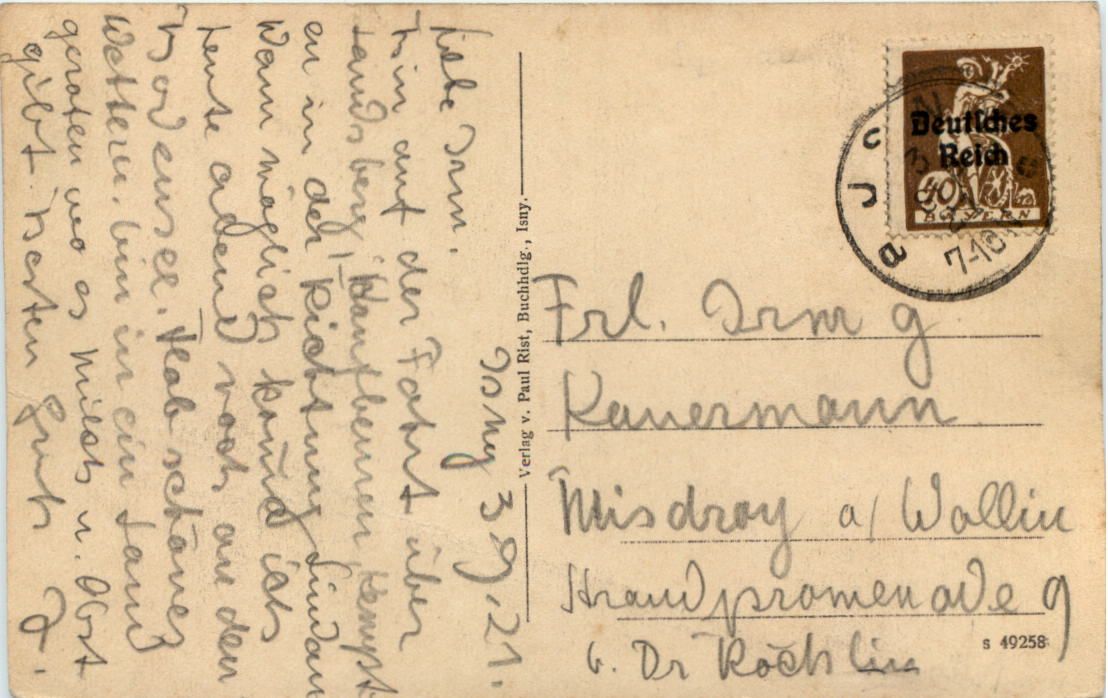 Isny 3.9.21.
Liebe Irm.
Bin auf der Fahrt über
Landsberg, Kaufbeuren, Kempt
en in der Richtung Lindau
Wenn möglich komme ich
heute abend noch an den
Bodensee. Hab schönes
Wetter, bin in ein Land
geraten wo es Milch u. Obst
gibt. Besten Gruß
Verlag v. Paul Rist, Buchhdlg., Isny.
Deutsches
Reich
BAYERN
7-10
Frl. Irmg
Kauermann
Misdroy a/ Wollin
Strandpromenade 9
b. Dr Röchlin
S 49258